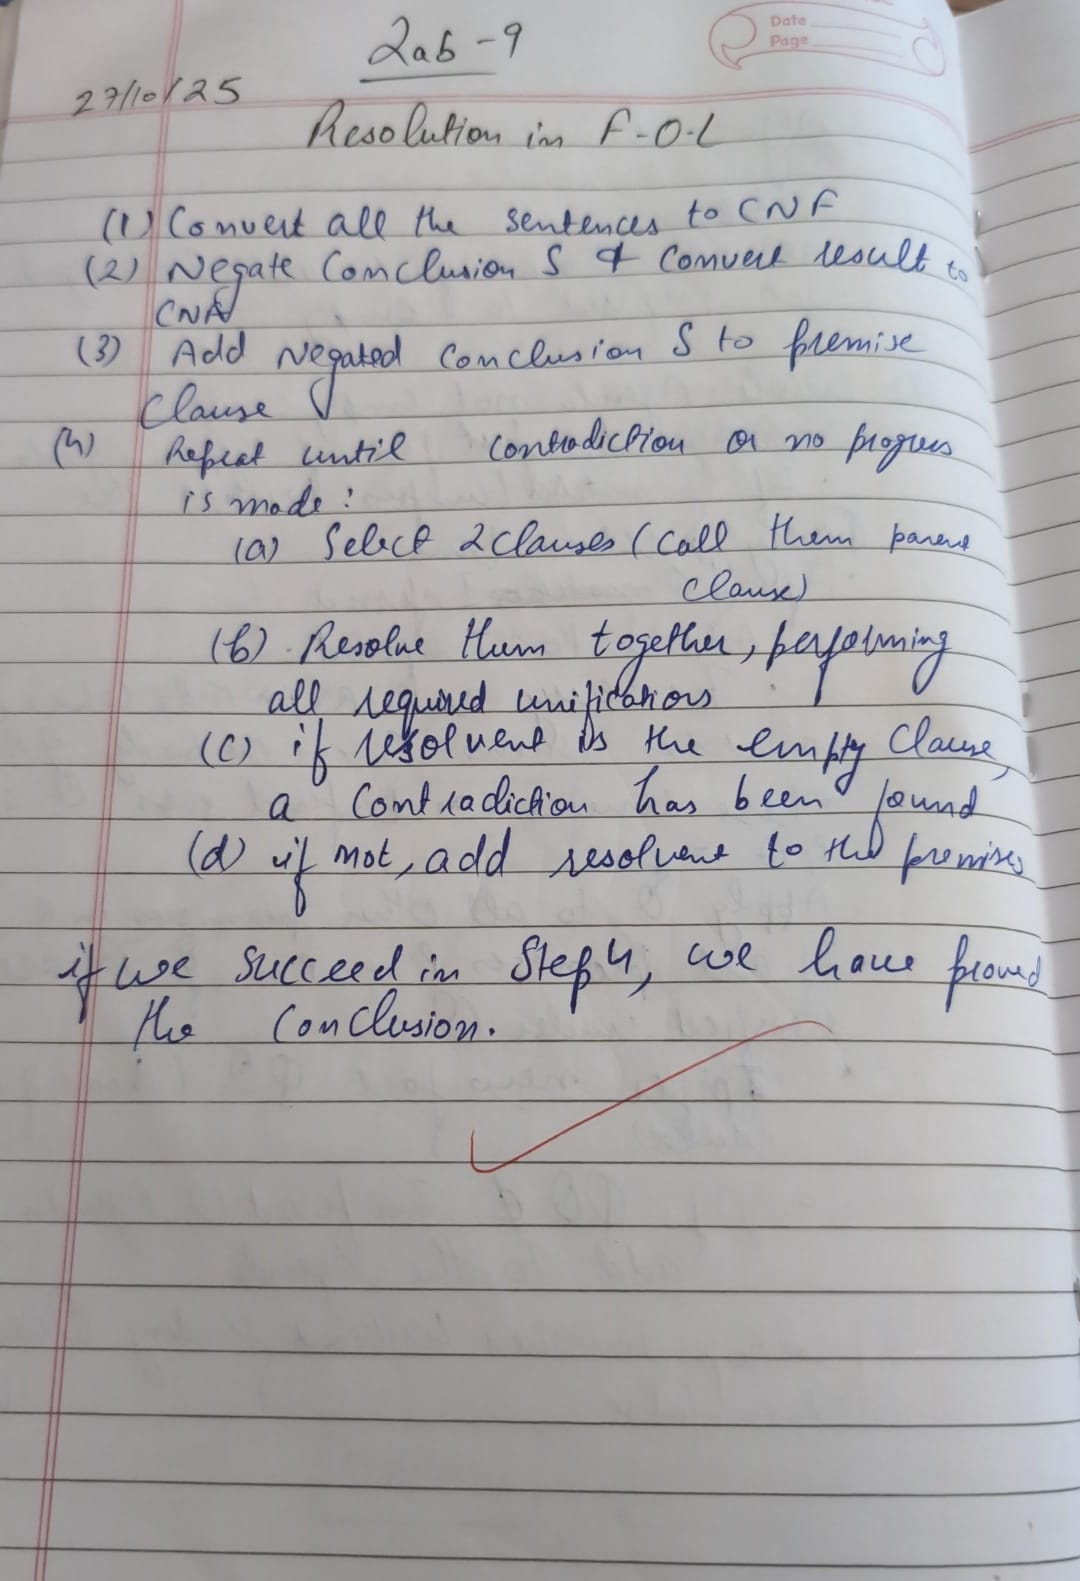 Date
Page
Lab - 9
27/10/25
Resolution in F-O-L
(1) Convert all the sentences to CNF
(2) Negate Conclusion S & Convert result to
CNF
(3) Add Negated Conclusion S to premise
Clause
(4) Repeat until contradiction or no progress
is made :
(a) Select 2 clauses (call them parent
clause)
(b) Resolve them together, performing
all required unifications
(c) if resolvent is the empty clause,
a contradiction has been found
(d) if not, add resolvent to the premises
if we succeed in Step 4, we have proved
the conclusion.